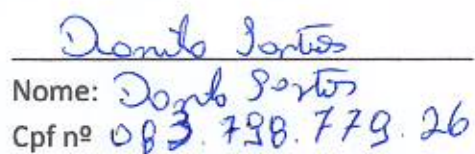 Danilo Santos
Nome: Danilo Santos
Cpf nº 083.798.779.26